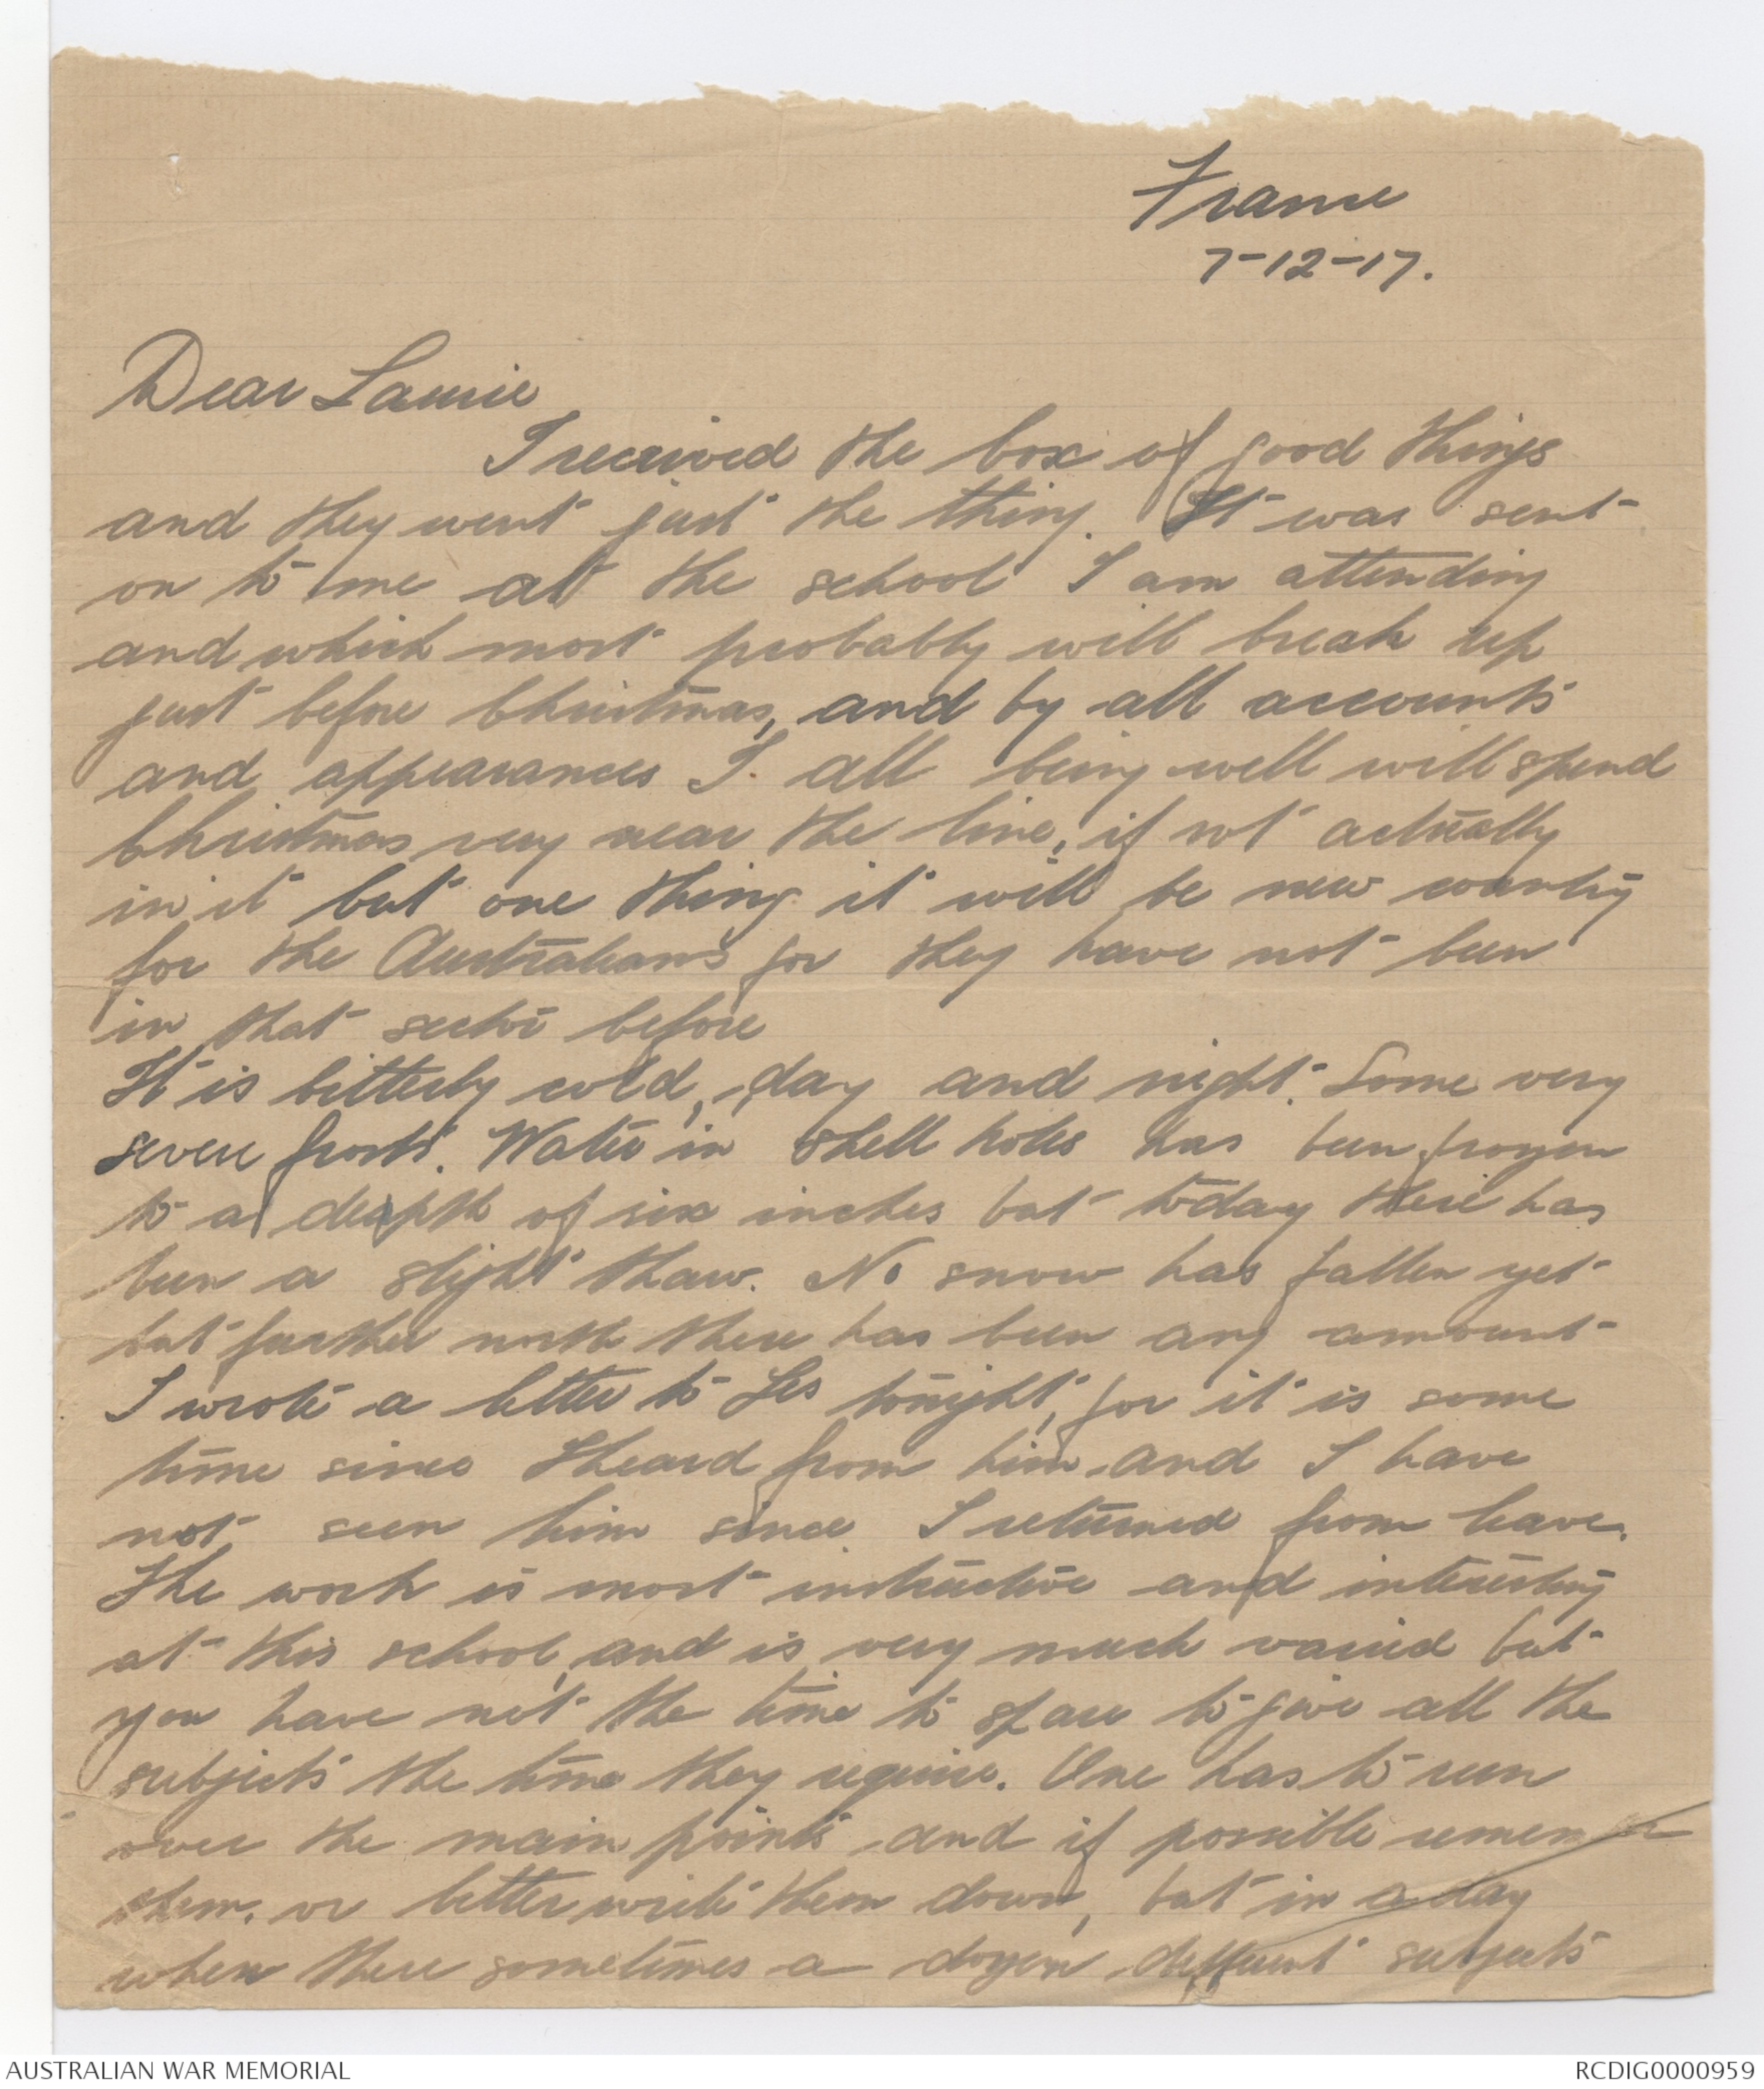 France
7-12-17.
Dear Laurie
I received the box of good things
and they went just the thing. It was sent
on to me at the school I am attending
and which most probably will break up
just before Christmas, and by all accounts
and appearances I all being well will spend
Christmas very near the line, if not actually
in it but one thing it will be new country
for the Australians for they have not been
in that sector before
It is bitterly cold, day and night. Some very
severe frosts. Water in shell holes has been frozen
to a depth of six inches but today there has
been a slight thaw. No snow has fallen yet
but further north there has been any amount
I wrote a letter to Les tonight, for it is some
time since I heard from him and I have
not seen him since I returned from leave.
The work is most instructive and interesting
at this school, and is very much varied but
you have not the time to spare to give all the
subjects the time they require. One has to run
over the main points and if possible
them. or better write them down, but in a day
when there sometimes a dozen different subjects
AUSTRALIAN WAR MEMORIAL
RCDIG0000959